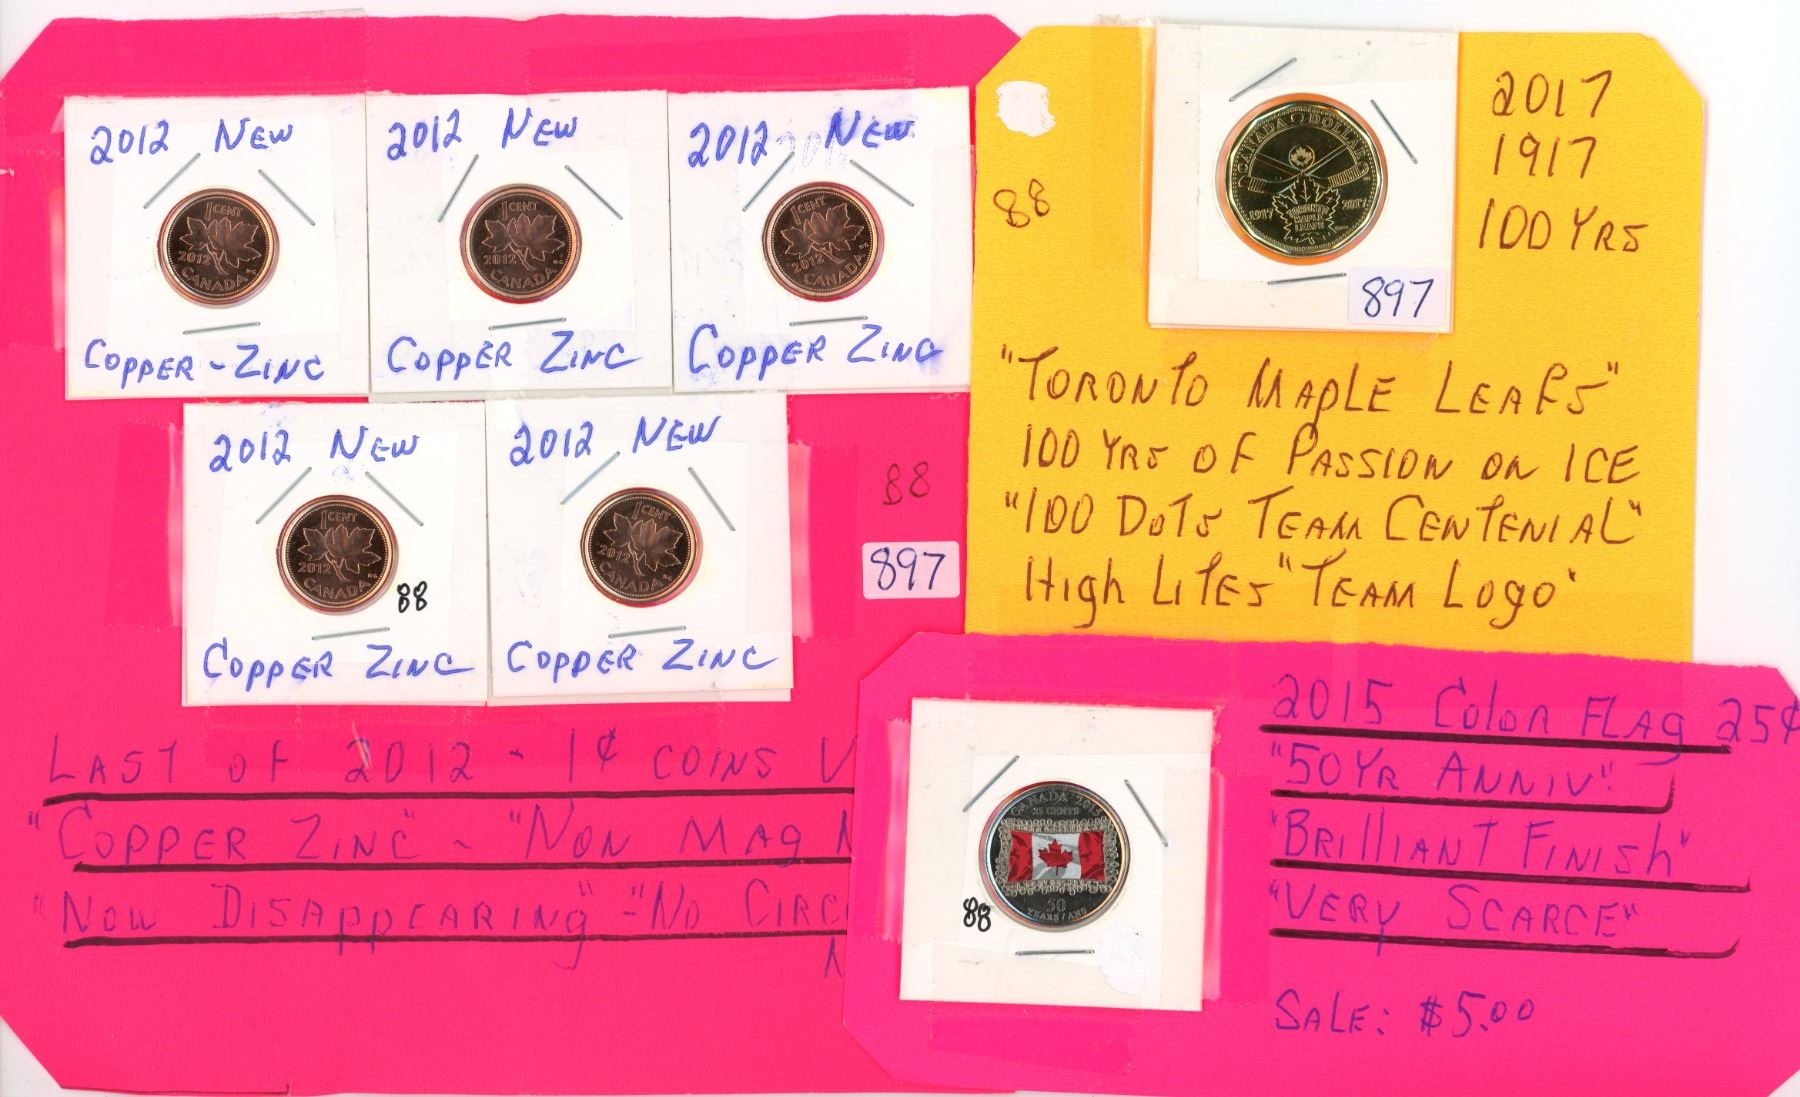 2012 NEW
1 CENT
2012
CANADA
COPPER-ZINC
2012 NEW
1 CENT
2012
CANADA
COPPER ZINC
2012 NEW
1 CENT
2012
CANADA
COPPER ZINC
2012 NEW
1 CENT
2012
CANADA
88
COPPER ZINC
2012 NEW
1 CENT
2012
CANADA
COPPER ZINC
88
897
LAST OF 2012 - 1¢ COINS
"COPPER ZINC" - "NON MAG
"NOW DISAPPEARING" - "NO CIRC
88
CANADA DOLLAR
1917 2017
TORONTO
MAPLE
LEAFS
897
2017
1917
100 YRS
"TORONTO MAPLE LEAFS"
100 YRS OF PASSION ON ICE
"100 DOTS TEAM CENTENIAL"
HIGH LITES "TEAM LOGO"
CANADA 2015
25 CENTS
50
YEARS / ANS
88
2015 COLOR FLAG 25¢
"50 YR ANNIV"
"BRILLIANT FINISH"
"VERY SCARCE"
SALE: $5.00